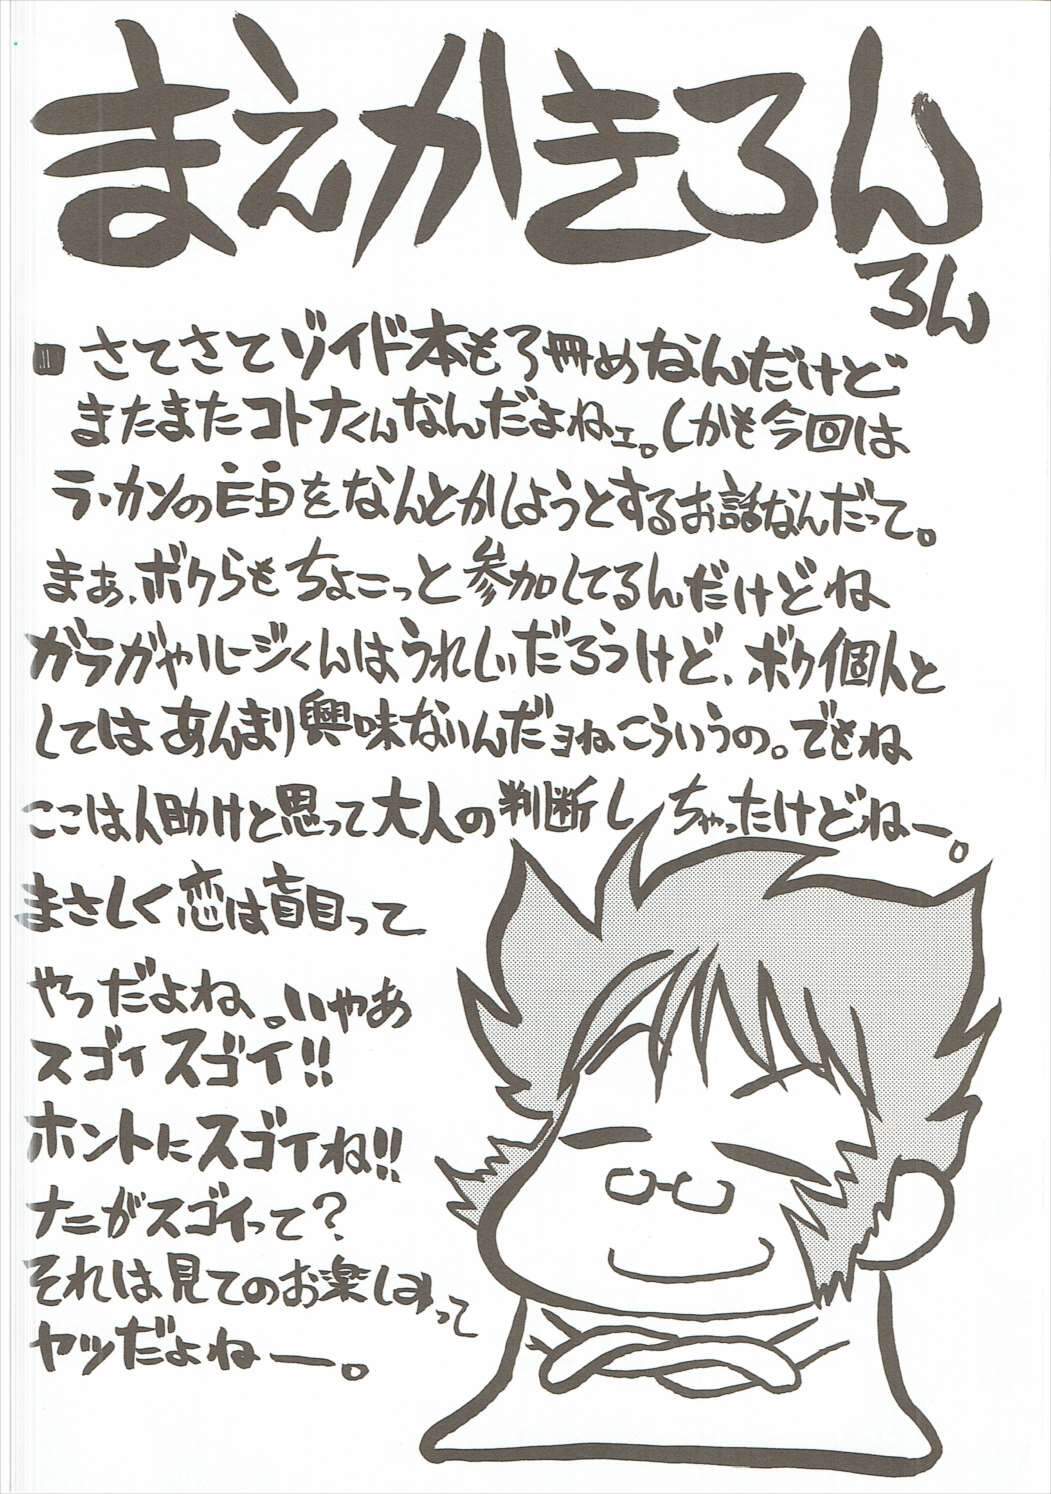 まえかきろん
ろん
■さてさてゾイド本も3冊めなんだけど
またまたコトナくんなんだよねェ。しかも今回は
ラ・カンの をなんとかしようとするお話なんだって。
まぁ、ボクらもちょこっと参加してるんだけどね
ガラガやルージくんはうれしいだろうけど、ボク個人と
してはあんまり興味ないんだョねこういうの。でもね
ここは人助けと思って大人の判断しちゃったけどねー。
まさしく恋は盲目って
やつだよね、。いやあ
スゴイスゴイ!!
ホントにスゴイね!!
ナニがスゴイって?
それは見てのお楽しみって
ヤツだよねー。